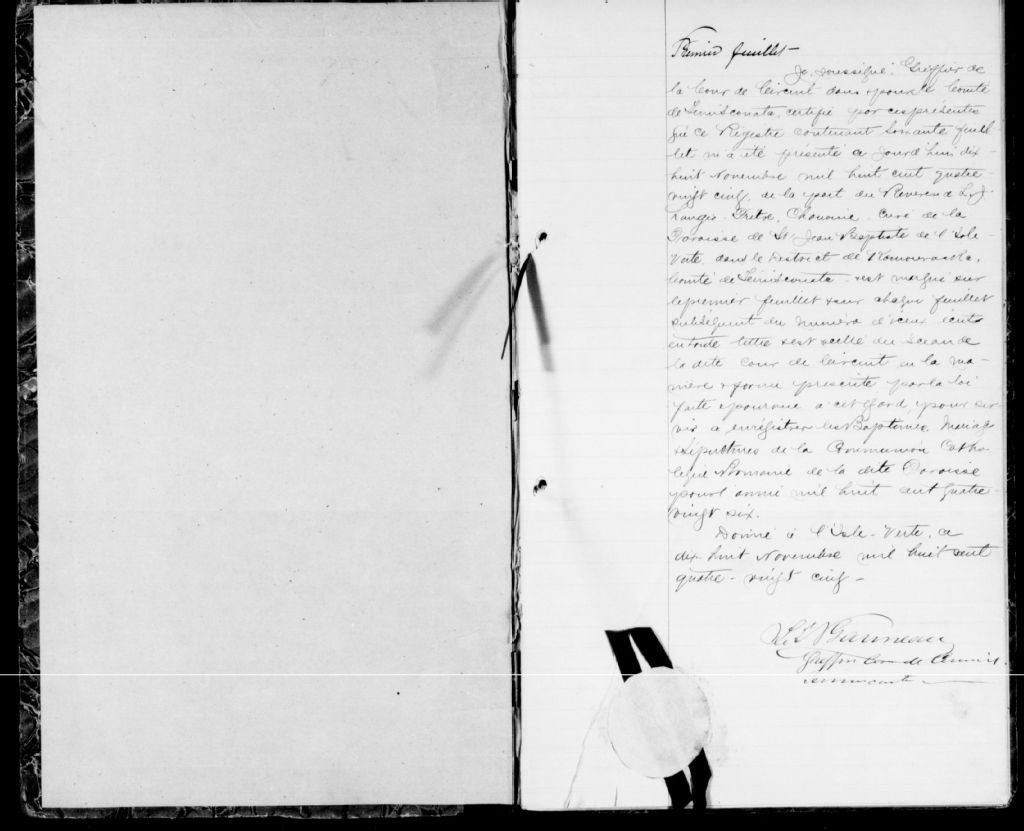 Premier feuillet -
Je, soussigné, Greffier de
la Cour de Circuit dans & pour le Comté
de Témiscouata, certifie par ces présentes
que ce Régistre contenant Soixante feuil
let m'a été présenté ce jourd'hui dix-
huit Novembre mil huit cent quatre
vingt cinq, de la part du Révérend L. J.
Prêtre, Chanoine, curé de la
Paroisse de St Jean Baptiste de l'Isle-
Verte, dans le District de Kamouraska,
Comté de Témiscouata & est marqué sur
le premier feuillet & sur chaque feuillet
subséquent du numéro d'iceux écrits
en toute lettre & est scellé du Sceau de
la dite Cour de Circuit en la ma-
nière & forme prescrite par la loi
faite & pourvue à cet égard, pour ser-
vir à enrégistrer les Baptêmes, Mariages
& Sépultures de la Communion Catho-
lique Romaine de la dite Paroisse
pour l'année mil huit cent quatre-
vingt six.
Donné à l'Isle-Verte, ce
dix-huit Novembre mil huit cent
quatre-vingt cinq -
Gauvreau
Greffier Cour de Circuit